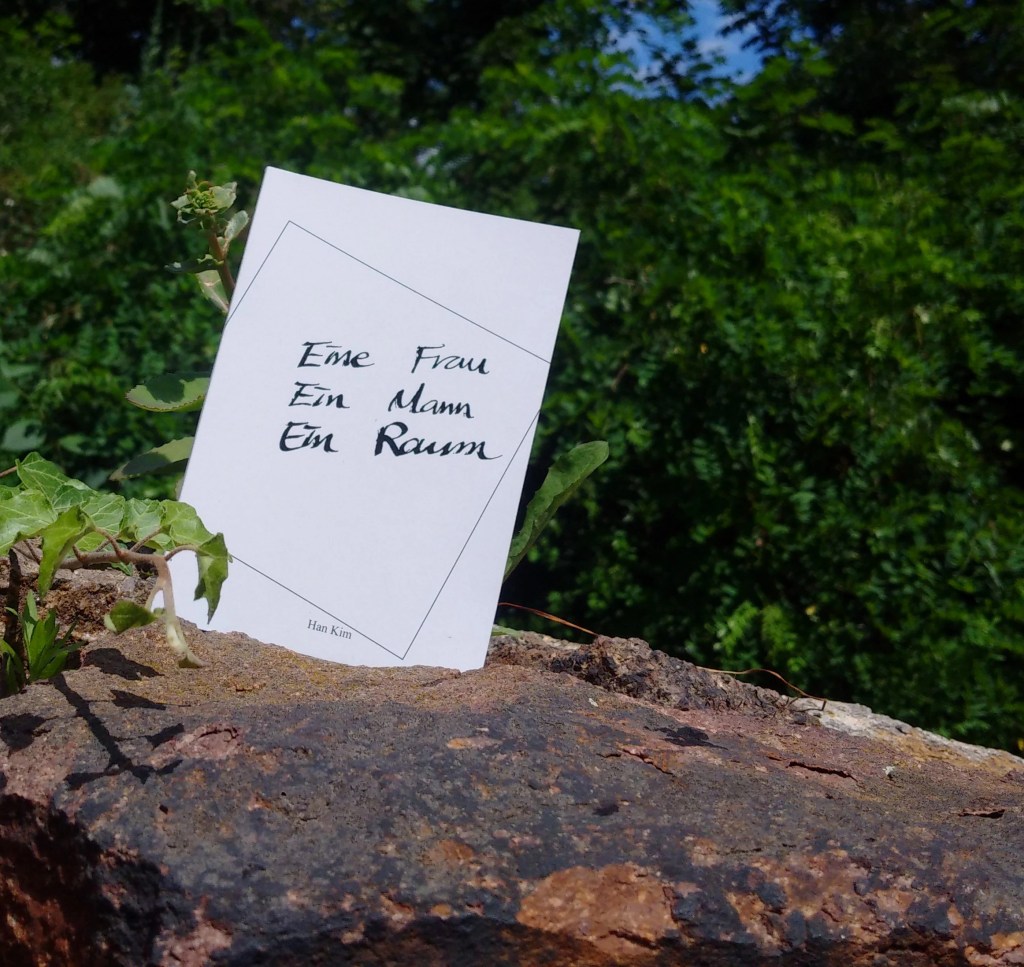 Eine Frau
Ein Mann
Ein Raum
Han Kim